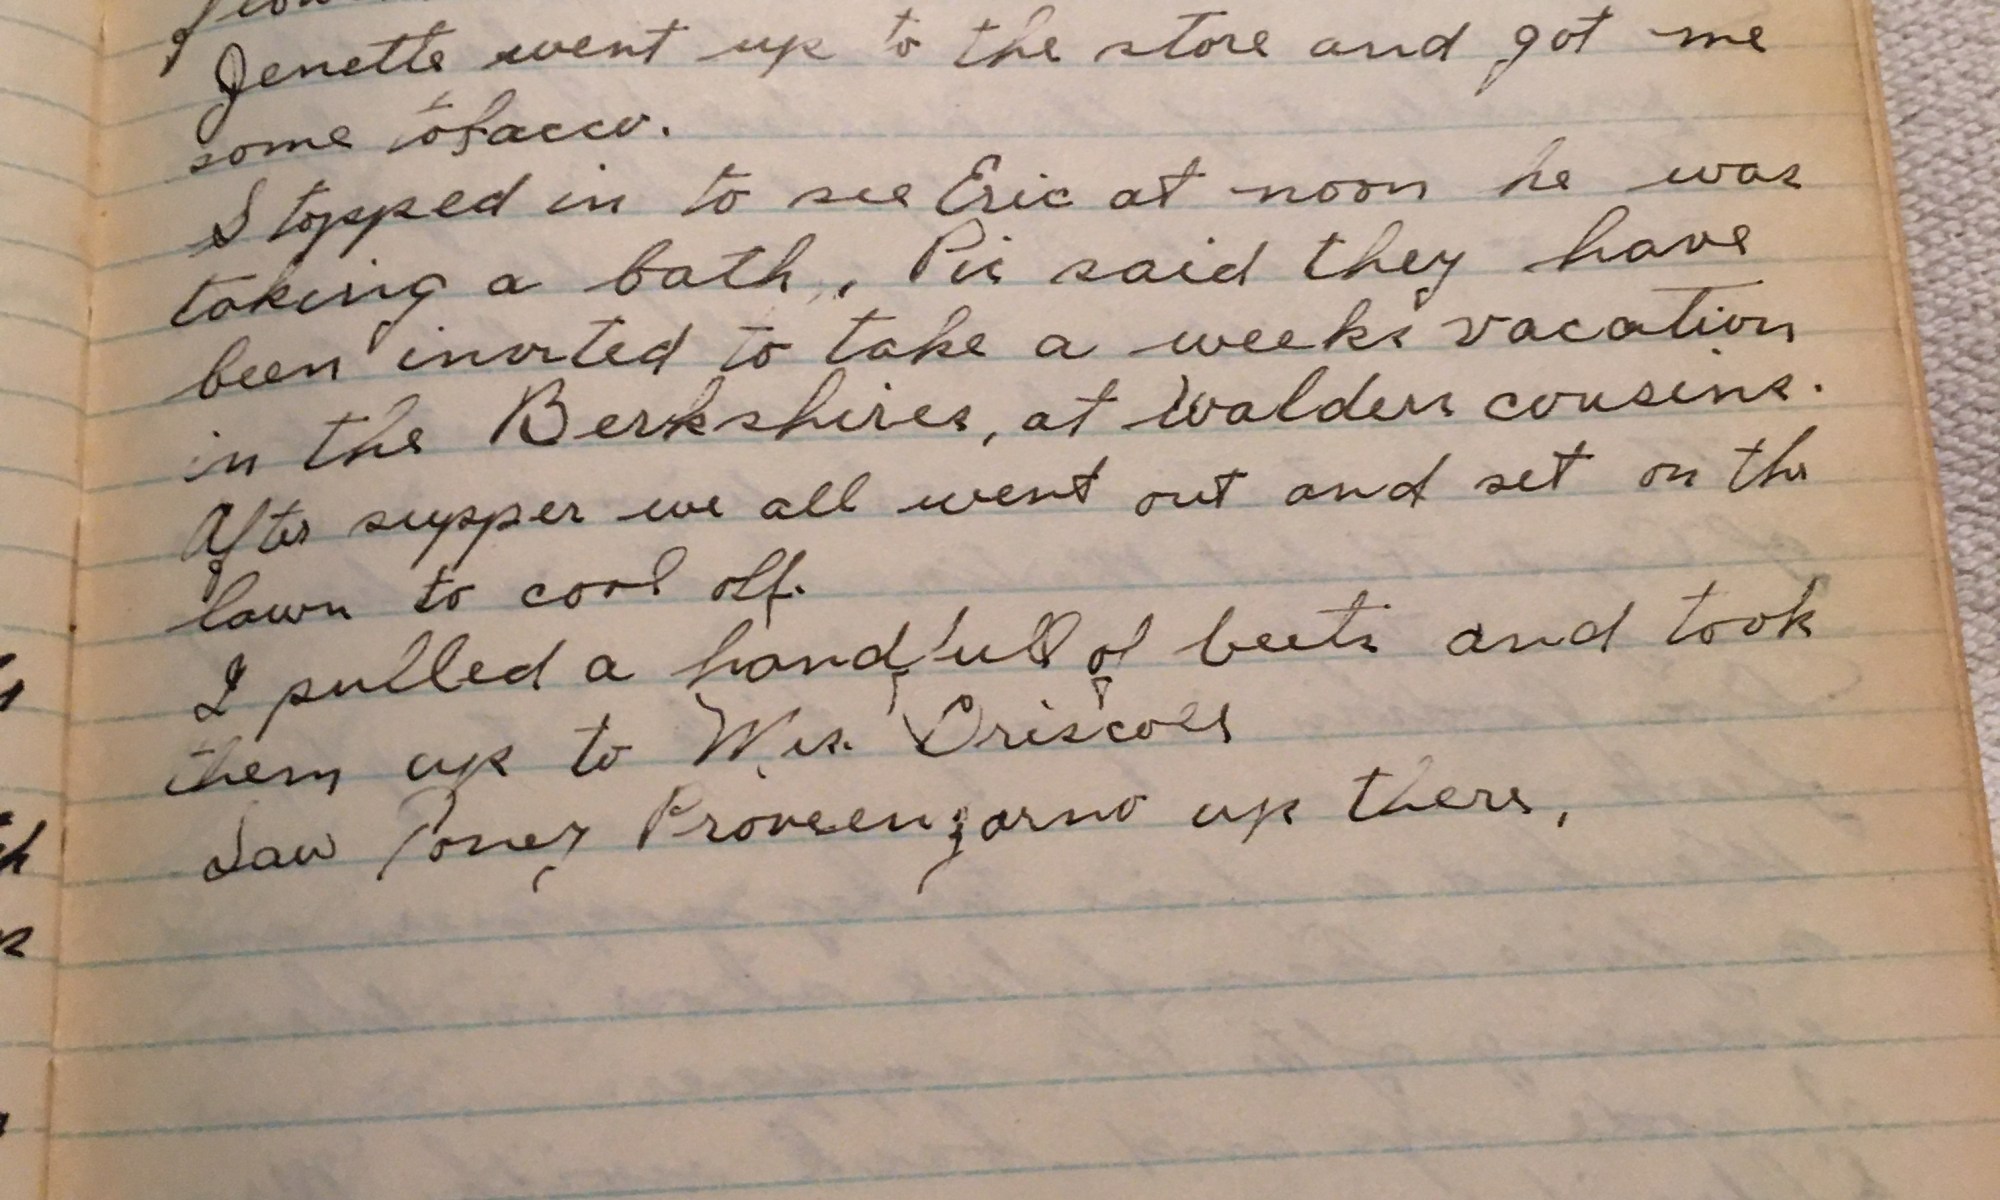 Jenette went up to the store and got me
some tobacco.
Stopped in to see Eric at noon he was
taking a bath, Pis said they have
been invited to take a weeks vacation
in the Berkshires, at Waldens cousins.
After supper we all went out and set on the
lawn to cool off.
I pulled a handfull of beets and took
them up to Mrs. Driscolls
Saw Toney Provenzarno up there,